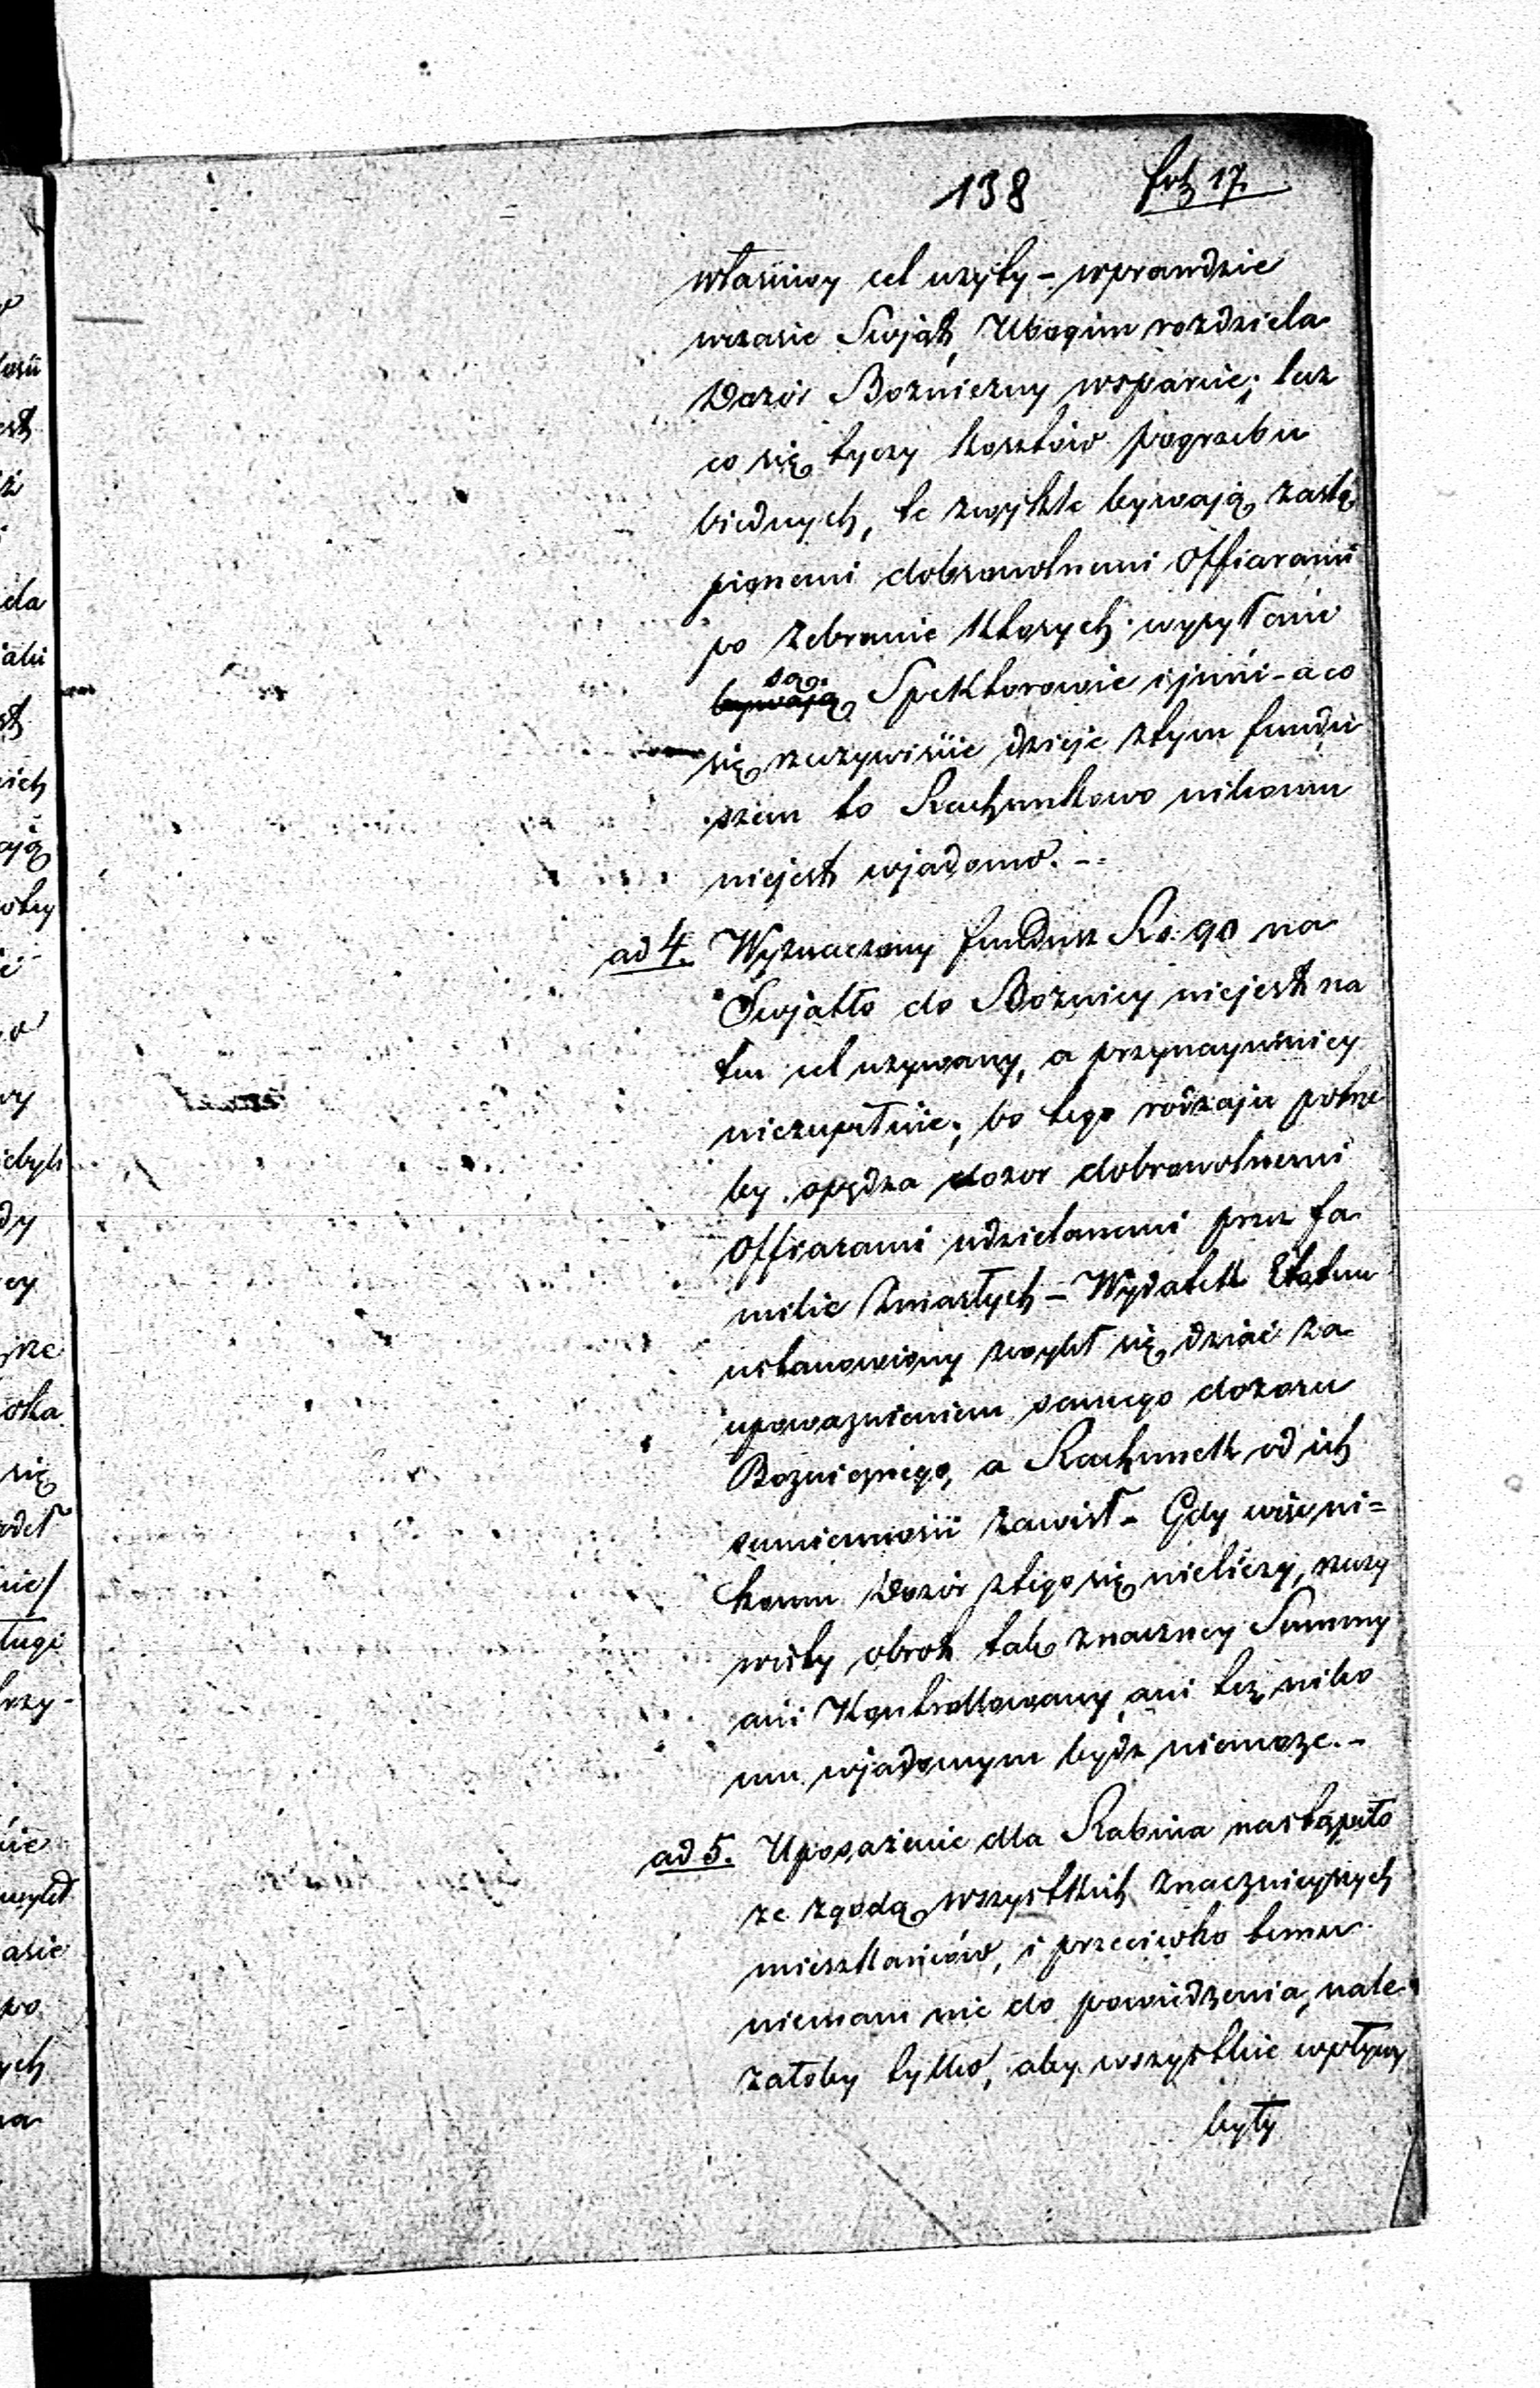 138 fol 17.
własciwy cel uzyty – wprawdzie
wczasie Swjąt, Ubogim rozdziela
Dozór Bozniczny wsparcie; lecz
co się tyczy kosztów pogrzebu
biednych, te zwykle bywają zastą
pionemi dobrowolnemi Offiarami
po zebranie ktorych wysyłanie
są
bywają Spektorowie i jnni – a co
się rzeczywiscie dzieje ztym fundu
szem to Rachunkowo nikomu
niejest wjadomo. –
ad 4. Wyznaczony fundusz Rs. 90 na
Swjatło do Boznicy niejest na
ten cel uzywany, a przynaymniey
niezupełnie; bo tego rodzaju potrze
by opędza dozor dobrowolnemi
Offiarami udzielanemi przez fa
milie zmarłych – Wydatek Etatem
ustanowiony zwykł się dziać za
upowaznieniem samego dozoru
Boznicznego, a Rachunek od ich
sumiennosci zawisł – Gdy więc ni=
komu Dozór ztego się nieliczy, rzeczy
wisty obrot tak znaczney Summy
ani Kontrollowany, ani tez niko
mu wjadomym bydz niemoze. –
ad 5. Uposażenie dla Rabina nastąpiło
ze zgodą wszystkich znacznieyszych
mieszkańców, i przeciwko temu
niemam nic do powiedzenia, nale
załoby tylko, aby wszystkie wpływy
były